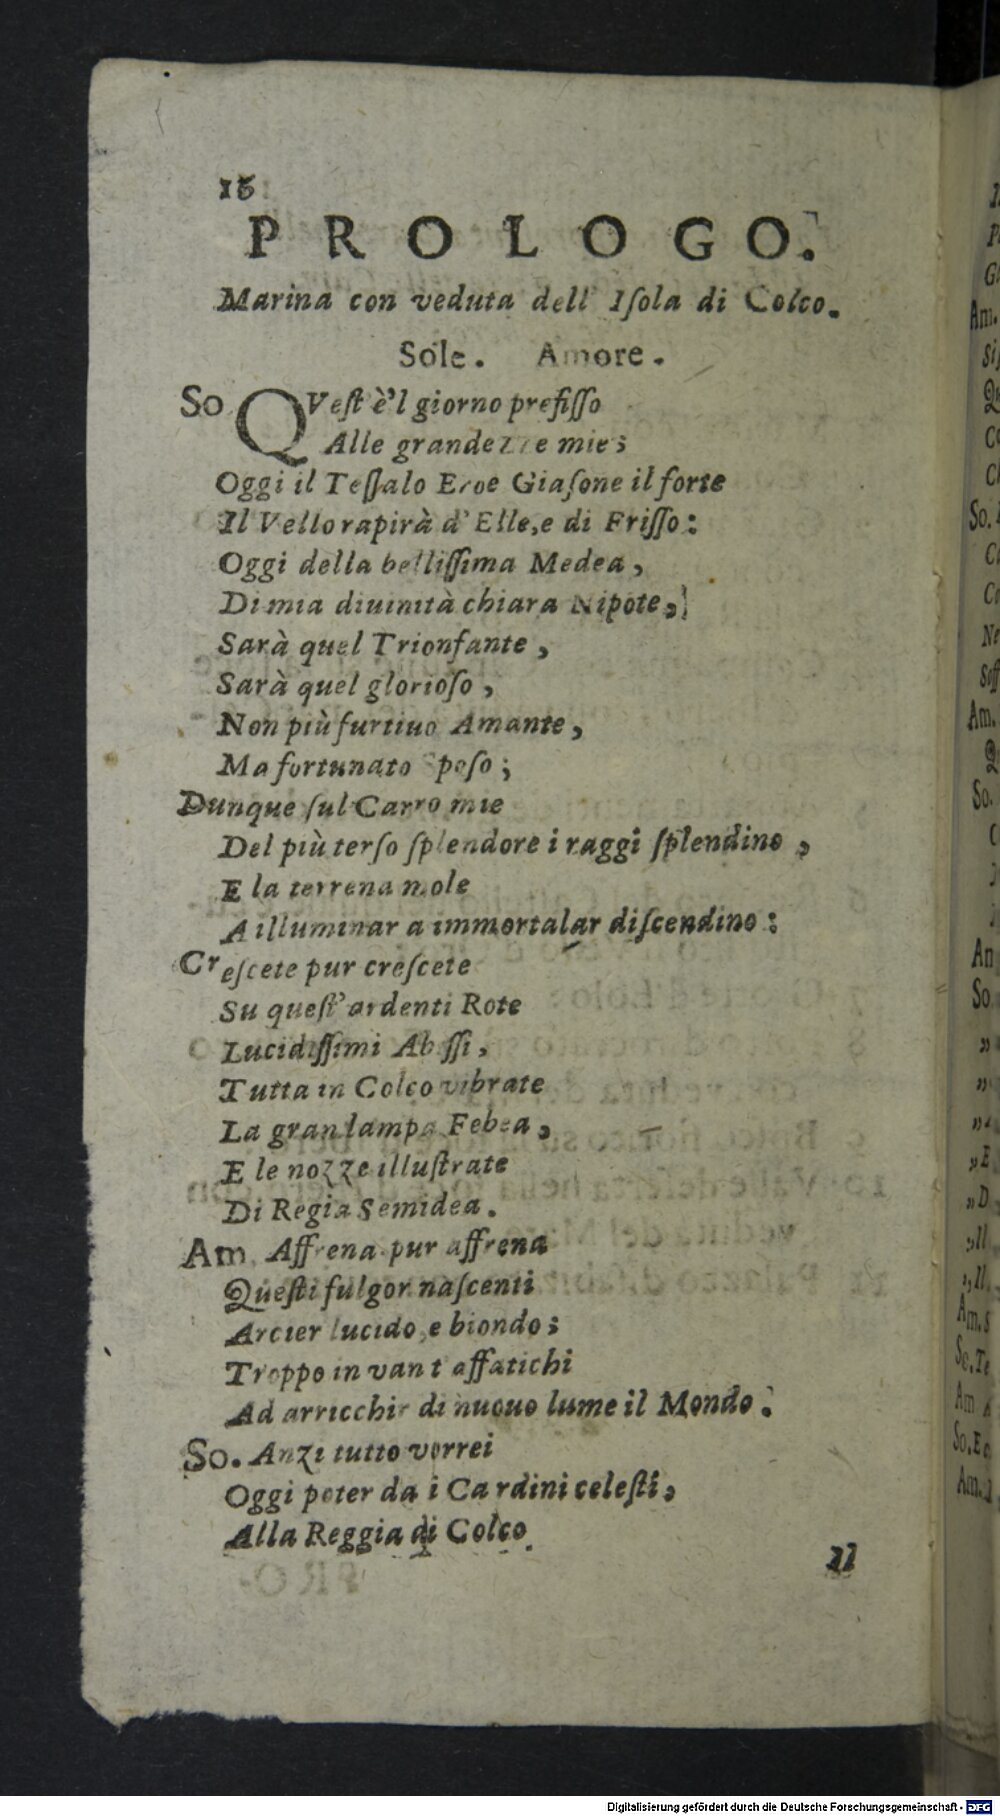 16
PROLOGO.
Marina con veduta dell' Iſola di Colco.
Sole. Amore.
So QVeſt è'l giorno prefiſſo
Alle grandezze mie;
Oggi il Teſſalo Eroe Giaſone il forte
Il Vello rapirà d' Elle, e di Friſſo:
Oggi della belliſſima Medea,
Di mia diuinità chiara Nipote,
Sarà quel Trionfante,
Sarà quel glorioſo,
Non più furtiuo Amante,
Ma fortunato Spoſo;
Dunque ſul Carro mie
Del più terſo ſplendore i raggi ſplendino,
E la terrena mole
A illuminar a immortalar diſcendino:
Creſcete pur creſcete
Su queſt' ardenti Rote
Lucidiſſimi Abiſſi,
Tutta in Colco vibrate
La gran lampa Febea,
E le nozze illuſtrate
Di Regia Semidea.
Am. Affrena pur affrena
Queſti fulgor naſcenti
Arcier lucido, e biondo;
Troppo in van t affatichi
Ad arricchir di nuouo lume il Mondo.
So. Anzi tutto vorrei
Oggi poter da i Cardini celeſti,
Alla Reggia di Colco
Il
Am.
So.
Am.
So.
An
So
Am.
So.
Am
So.
Am.
Digitalisierung gefördert durch die Deutsche Forschungsgemeinschaft - DFG